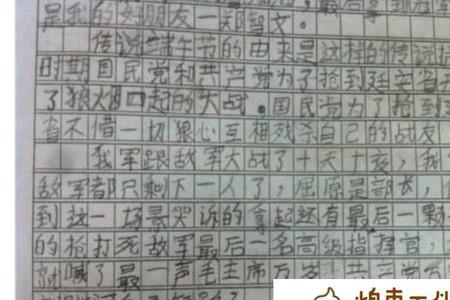 是我的好朋友一郑智文。
传说端午节的由来是这样的传说
时期国民党和共产党为了抢到延安省
了狼火四起的大战。国民党为了抢到
省不借一切狠心互相残杀自己的战友
我军跟敌军大战了十天十夜,我
敌军都只剩下一人了,屈原是部长,
到这一场景哭诉的拿起还有最后一颗
的枪打死敌军最后一名高级指挥官,
就喊了最一声毛主席万岁,共产党万